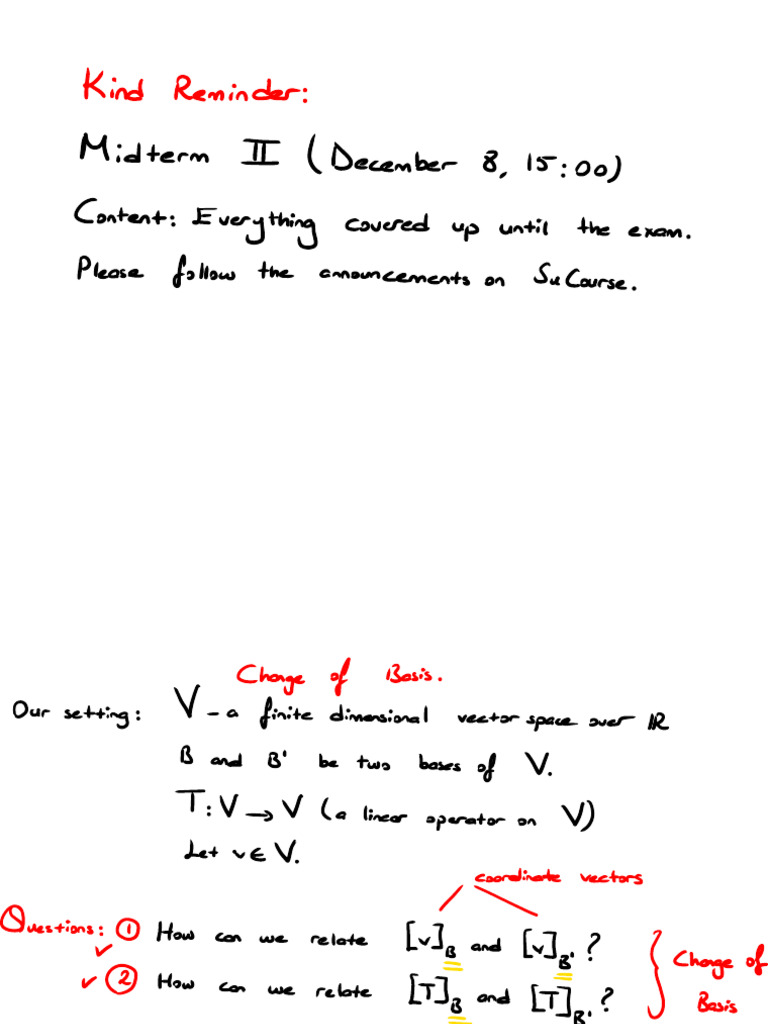 Kind Reminder:
Midterm II (December 8, 15:00)
Content: Everything covered up until the exam.
Please follow the announcements on SuCourse.
Change of Basis.
Our setting: V - a finite dimensional vector space over ℝ
B and B' be two bases of V.
T: V → V (a linear operator on V)
Let v ∈ V.
coordinate vectors
Questions: ① How can we relate [v]_B and [v]_B' ?
✓ ② How can we relate [T]_B and [T]_B' ?
Change of
Basis